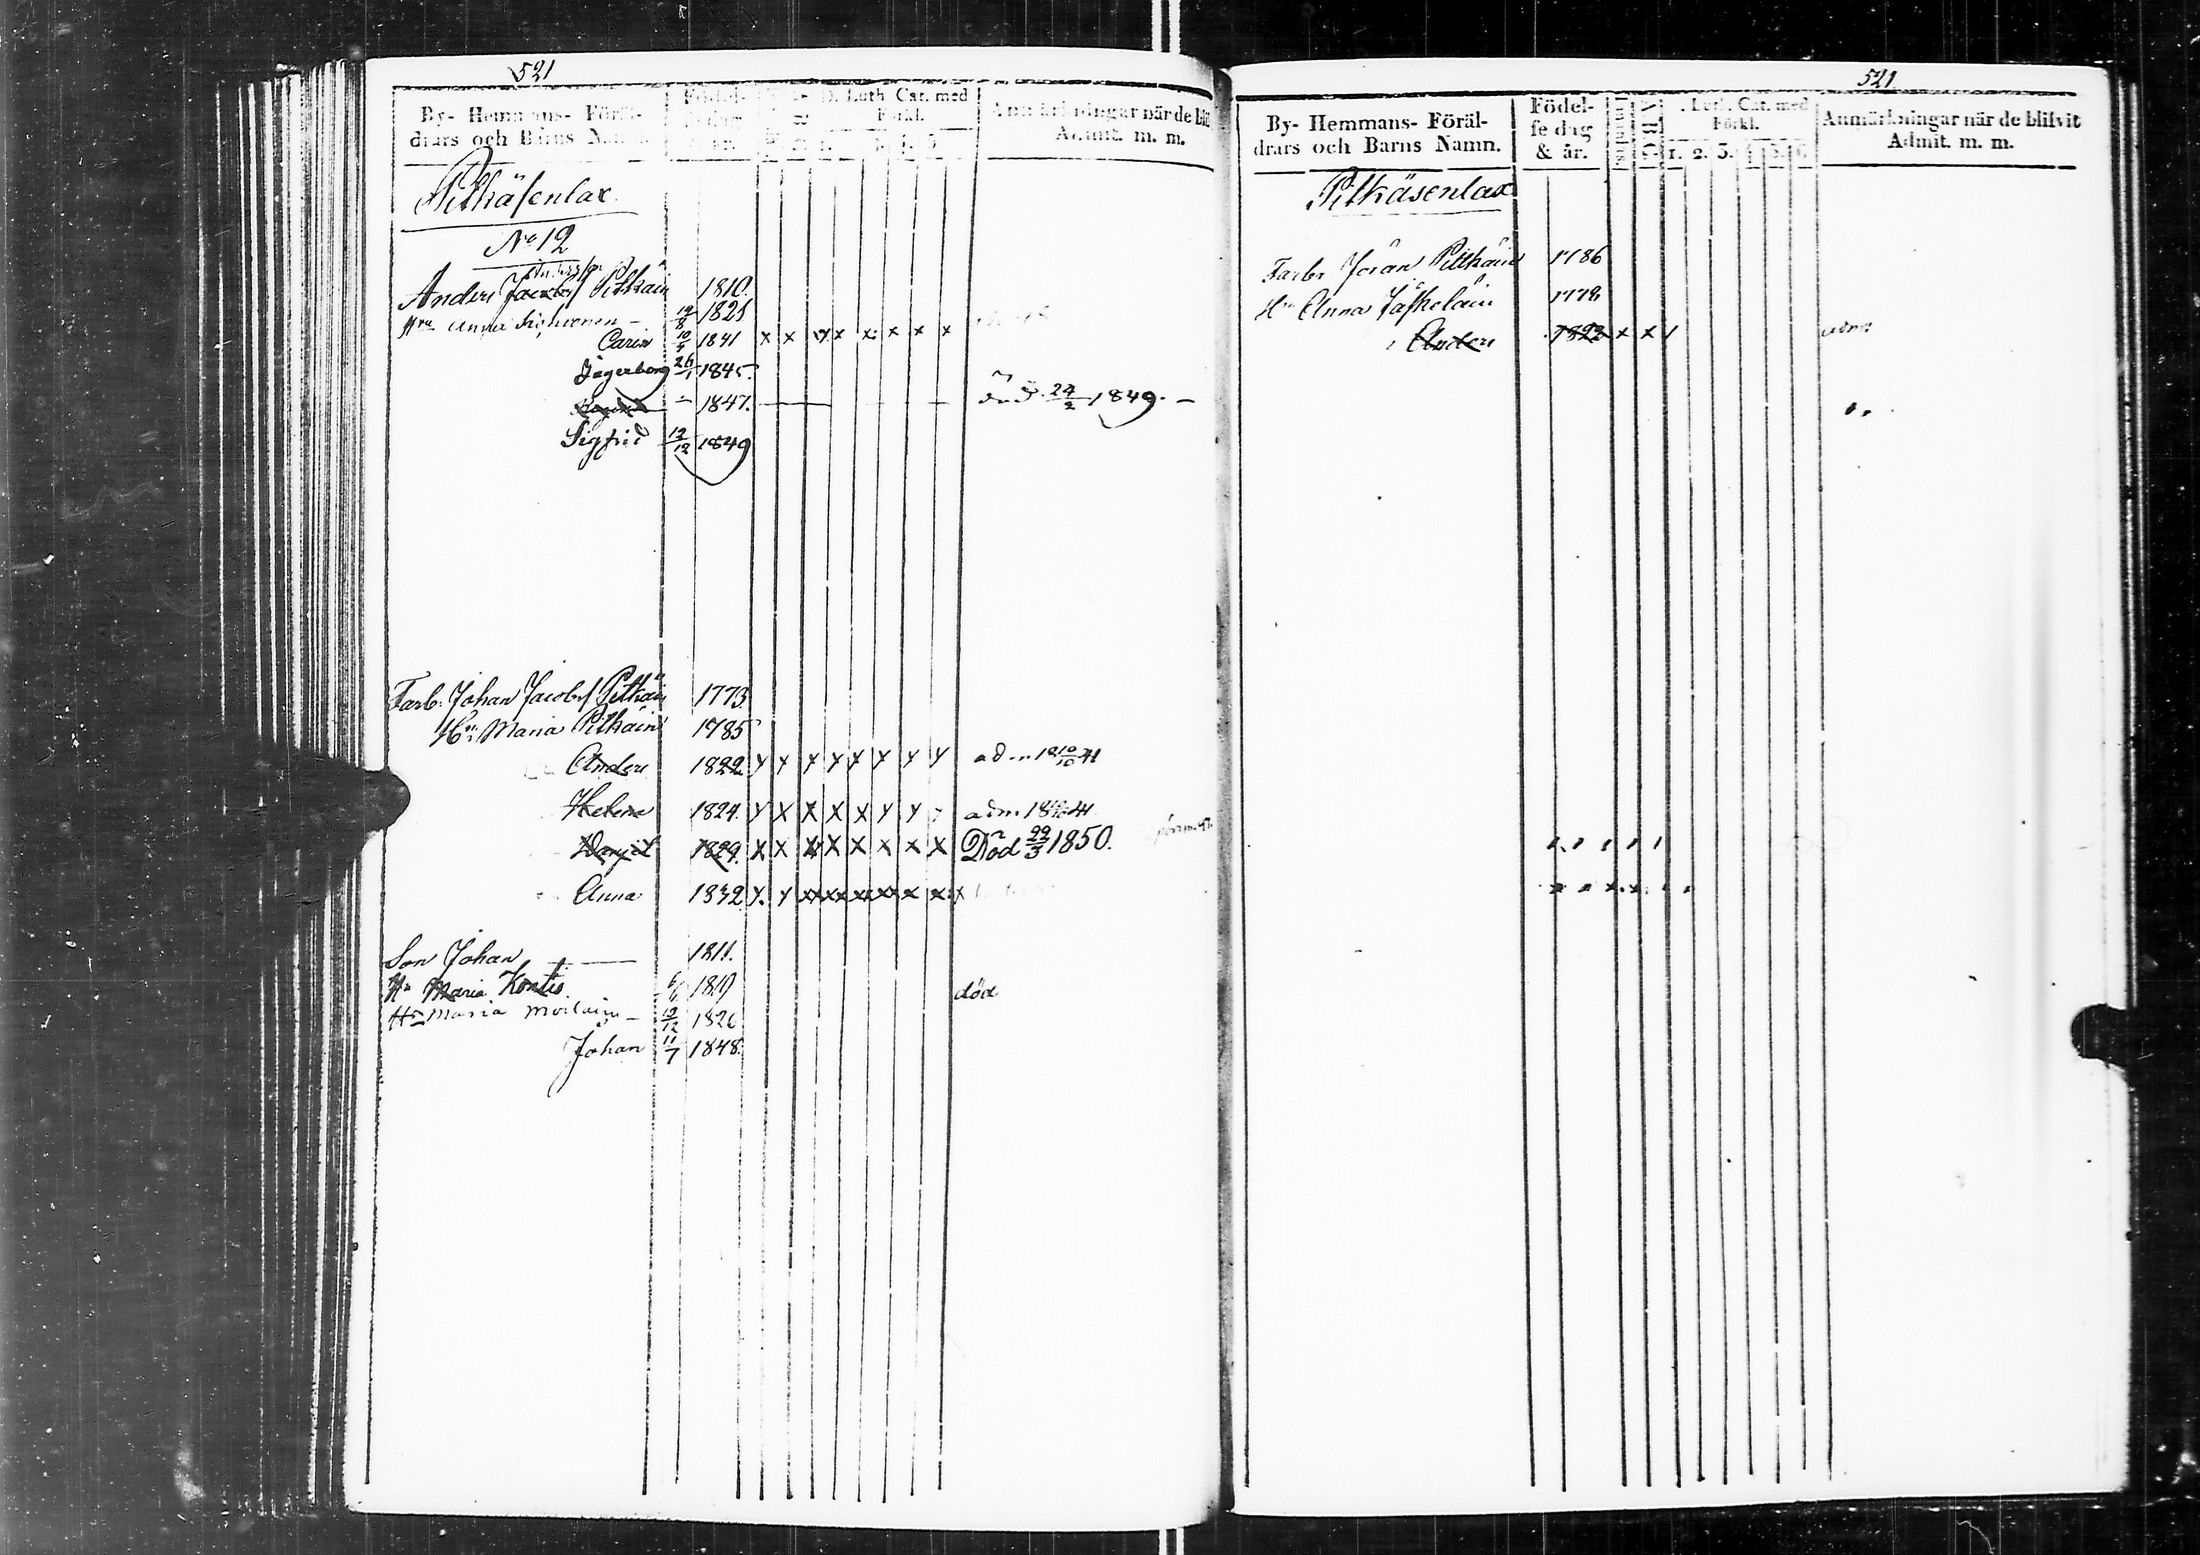 521
By- Hemmans- Föräl-
drars och Barns Namn.
Födel-
D. Luth. Cat. med
Förkl.
Anmärkningar när de blif
Admit. m. m.
Pitkäsenlax
No 12
Anders Jacobs/ Pitkäin 1810
Hru Anna 1821
Carin 1841 x x x x x x x x
Jägerborg 26/1 1845.
1847. död 24/2 1849. —
Sigfrid 12/12 1849
Farb. Johan Jacobs/ Pitkäin 1773.
Hu Maria Pitkäin 1785
Anders 1822 y y y y y y y y adm 18 10/10 41
Helena 1824. y x x x x y y adm 18 10/10 41
Daniel 1829. x x x x x x x x Död 22/3 1850.
Anna 1832 y. y xx xx xx xx x x x
Son Johan — 1811.
Hu Maria Kontio 1819 död
Hu Maria — 12/12 1826
Johan 11/7 1848.
521
By- Hemmans- Föräl-
drars och Barns Namn.
Födel-
se dag
& år.
A B C
Luth. Cat. med
Förkl.
1. 2. 3. 4. 5. 6.
Anmärkningar när de blifvit
Admit. m. m.
Pitkäsenlax
Farbr Jöran Pitkäin 1786
Hu Anna Jäskeläin 1778
Anders 1822 x x / adm